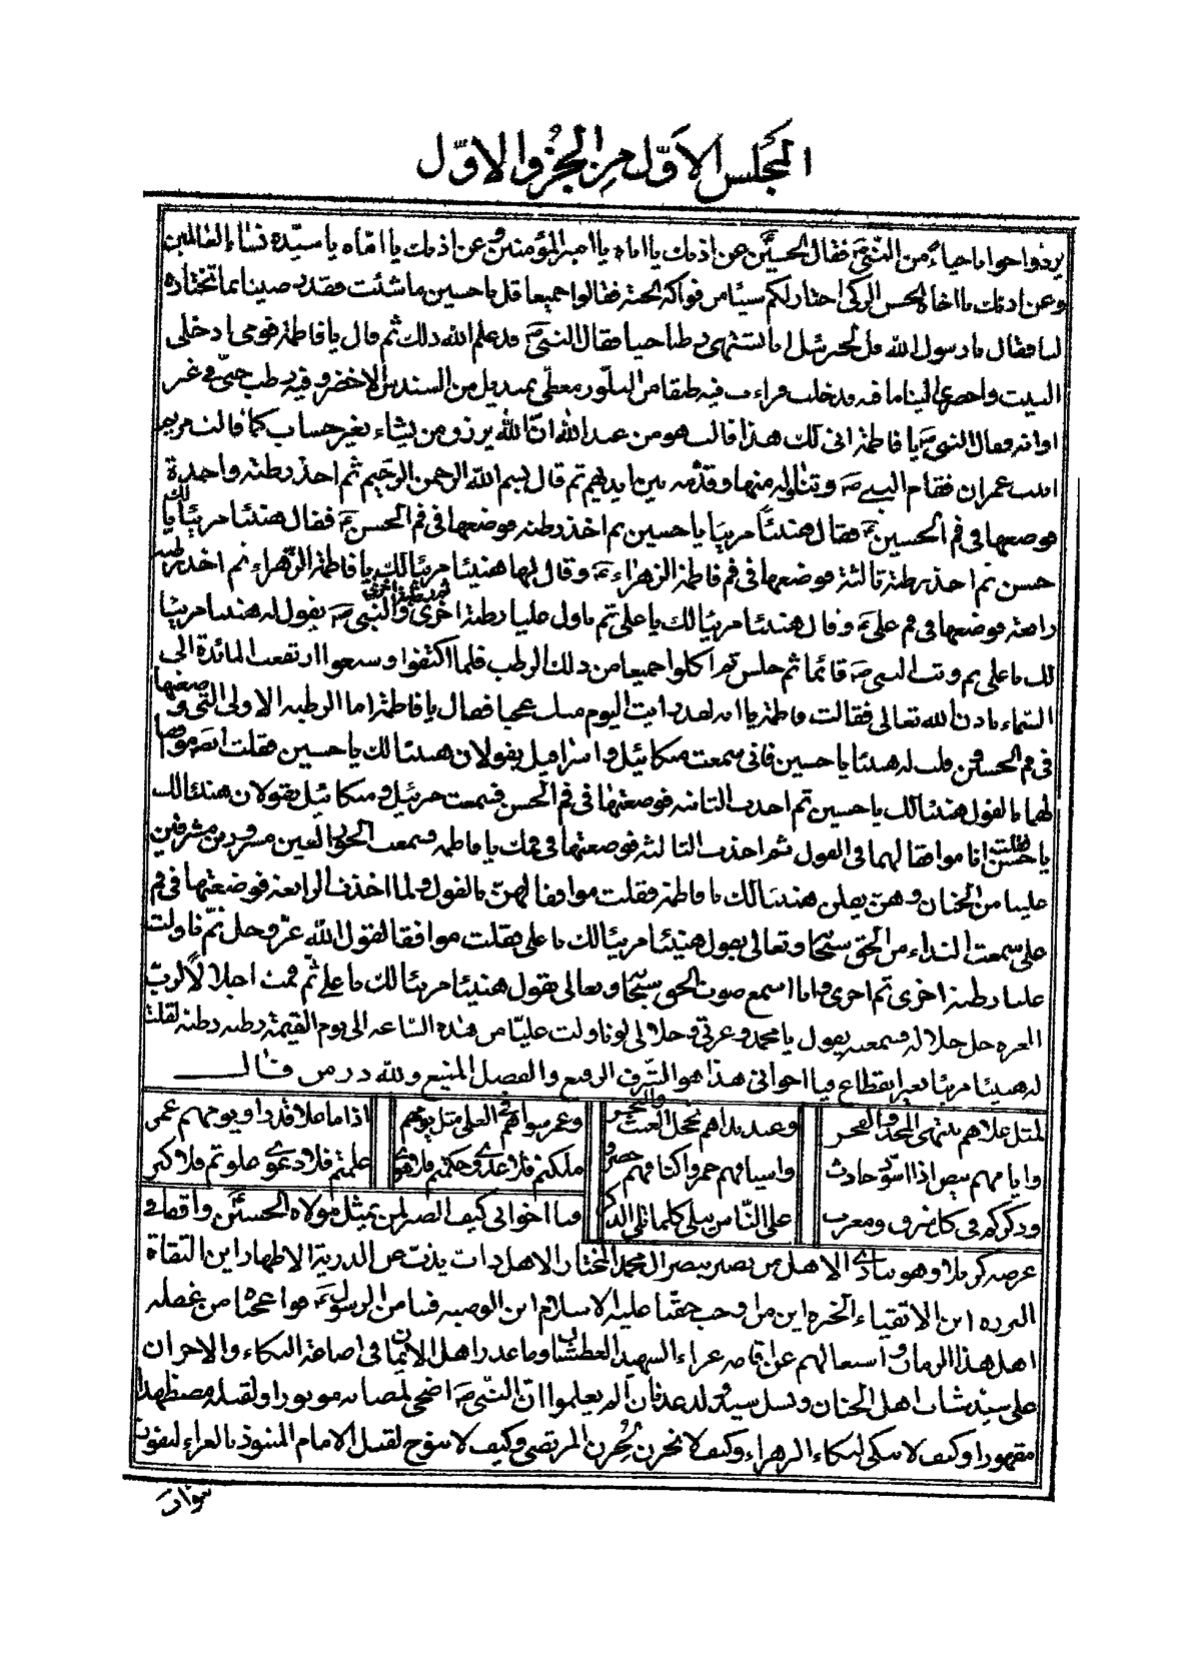 المجلس الاوّل من الجزو الاوّل
يردوا جوابا حياء من النبی فقال الحسین عن اذنك یا اباه یا امیر المؤمنین و عن اذنك یا امّاه یا سیّدة نساء العالمین
و عن اذنك یا اخاه الحسن الزكی اختار لكم شیئا من فواكه الجنة فقالوا جمیعا قل یا حسین ما شئت فقد رضینا بما تختاره
لنا فقال یا رسول الله قل لجبرئیل انا نشتهی رطبا جنیا فقال النبی قد علم الله ذلك ثم قال یا فاطمة قومی ادخلی
البیت و احضری الینا ما فیه فدخلت فرات فیه طبقا من البلّور مغطی بمندیل من السندس الاخضر و فیه رطب جنیّ فی غیر
اوانه فقال النبی یا فاطمة انی لك هذا قالت هو من عند الله انّ الله یرزق من یشاء بغیر حساب كما قالت مریم
ابنت عمران فقام النبی و تناوله منها و قدّمه بین ایدیهم ثم قال بسم الله الرحمن الرحیم ثم اخذ رطبة واحدة
فوضعها فی فم الحسین فقال هنیئا مریئا یا حسین ثم اخذ رطبة فوضعها فی فم الحسن فقال هنیئا مریئا لك یا
حسن ثم اخذ رطبة ثالثة فوضعها فی فم فاطمة الزهراء و قال لها هنیئا مریئا لك یا فاطمة الزّهراء ثم اخذ رطبة
رابعة فوضعها فی فم علی و قال هنیئا مریئا لك یا علی ثم ناول علیا رطبة اخری و النبی یقول له هنیئا مریئا
لك یا علی ثم وثب النبی قائما ثم جلس ثم اكلوا جمیعا من ذلك الرطب فلما اكتفوا و شبعوا ارتفعت المائدة الی
السّماء باذن الله تعالی فقالت فاطمة یا ابه لقد رایت الیوم منك عجبا فقال یا فاطمة اما الرطبة الاولی التی وضعتها
فی فم الحسین و قلت له هنیئا یا حسین فانی سمعت میكائیل و اسرافیل یقولان هنیئا لك یا حسین فقلت ایضا موافقا
لهما بالقول هنیئا لك یا حسین ثم اخذت الثانیة فوضعتها فی فم الحسن فسمعت جبرئیل و میكائیل یقولان هنیئا لك
یا حسن فقلت انا موافقا لهما فی القول ثم اخذت الثالثة فوضعتها فی فمك یا فاطمة فسمعت الحور العین مسرورین مشرفین
علینا من الجنان و هنّ یقلن هنیئا لك یا فاطمة فقلت موافقا لهنّ بالقول و لما اخذت الرابعة فوضعتها فی فم
علی سمعت النداء من الحق سبحانه و تعالی یقول هنیئا مریئا لك یا علی فقلت موافقا لقول الله عزّ و جل ثمّ ناولت
علیا رطبة اخری ثم اخری و انا اسمع صوت الحق سبحانه و تعالی یقول هنیئا مریئا لك یا علی ثم قمت اجلالاً لربّ
العزة جل جلاله فسمعته یقول یا محمد و عزتی و جلالی لو ناولت علیّا من هذه السّاعة الی یوم القیمة رطبة رطبة لقلت
له هنیئا مریئا بغیر انقطاع فیا اخوانی هذا هو الشّرف الرفیع و الفضل المنیع و لله در من قال
لمثل علاهم ینتهی المجد و الفخر
و عند نداهم یخجل الغیث و البحر
و عمر سواهم فی العلی مثل یومهم
اذا ما علا قدرا و یومهم عمر
و ایامهم بیض اذا اسود حادث
و اسیافهم حمر و اكنافهم خضر
ملكتم فلا عدی و حكتم فلا هوی
علمتم فلا دعوی علوتم فلا كبر
و ذكركم فی كل شرق و مغرب
علی النّاس یتلی كلما تلی الذكر
فیا اخوانی كیف الصبر لمن یمثل مولاه الحسین واقفا فی
عرصة كربلا و هو ینادی الا هل من نصیر ینصر ال محمد المختار الا هل ذاب یذب عن الذریة الاطهار این الثقاة
البررة این الاتقیاء الخیرة این من اوجب حقنا علیه الاسلام این الوصیة فینا من الرسول فوا عجبا من غفلة
اهل هذا الزمان و اشتغالهم عن اقامة عزاء الشهید العطشان و ما عذر اهل الایمان فی اضاعة البكاء و الاحزان
علی سید شباب اهل الجنان و نسل سید ولد عدنان الم یعلموا انّ النّبی اضحی لمصابه موتورا و لقتله مضطهدا
مقهورا و كیف لا نبكی لبكاء الزهراء و كیف لا نحزن لحُزن المرتضی و كیف لا ننوح لقتل الامام المنبوذ بالعراء